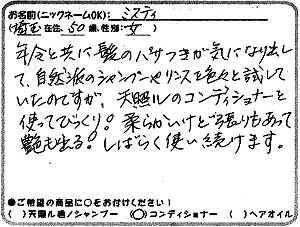 お名前(ニックネームOK): ミスティ
(埼玉 在住、50 歳、性別: 女 )
年令と共に髪のパサつきが気になり出し
て、自然派のシャンプーやリンスを色々と試して
いたのですが、天照ルのコンディショナーと
使ってびっくり！柔らかいけど張りもあって
艶も出る！しばらく使い続けます。
●ご希望の商品に○をお付けください！
( )天照ル恵ノシャンプー (○)コンディショナー ( )ヘアオイル